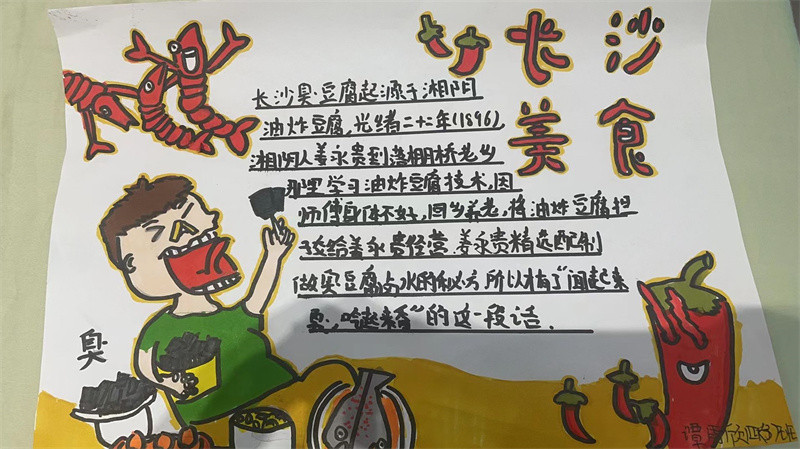 长沙
美食
长沙臭豆腐起源于湘阴
油炸豆腐,光绪二十二年(1896),
湘阴人姜永贵到落棚桥老乡
那里学习油炸豆腐技术,因
师傅身体不好,回乡养老,将油炸豆腐担
交给姜永贵经营.姜永贵精选配制
做臭豆腐卤水的秘方,所以才有了“闻起来
臭,吃起来香”的这一段话.
臭
谭雨欣